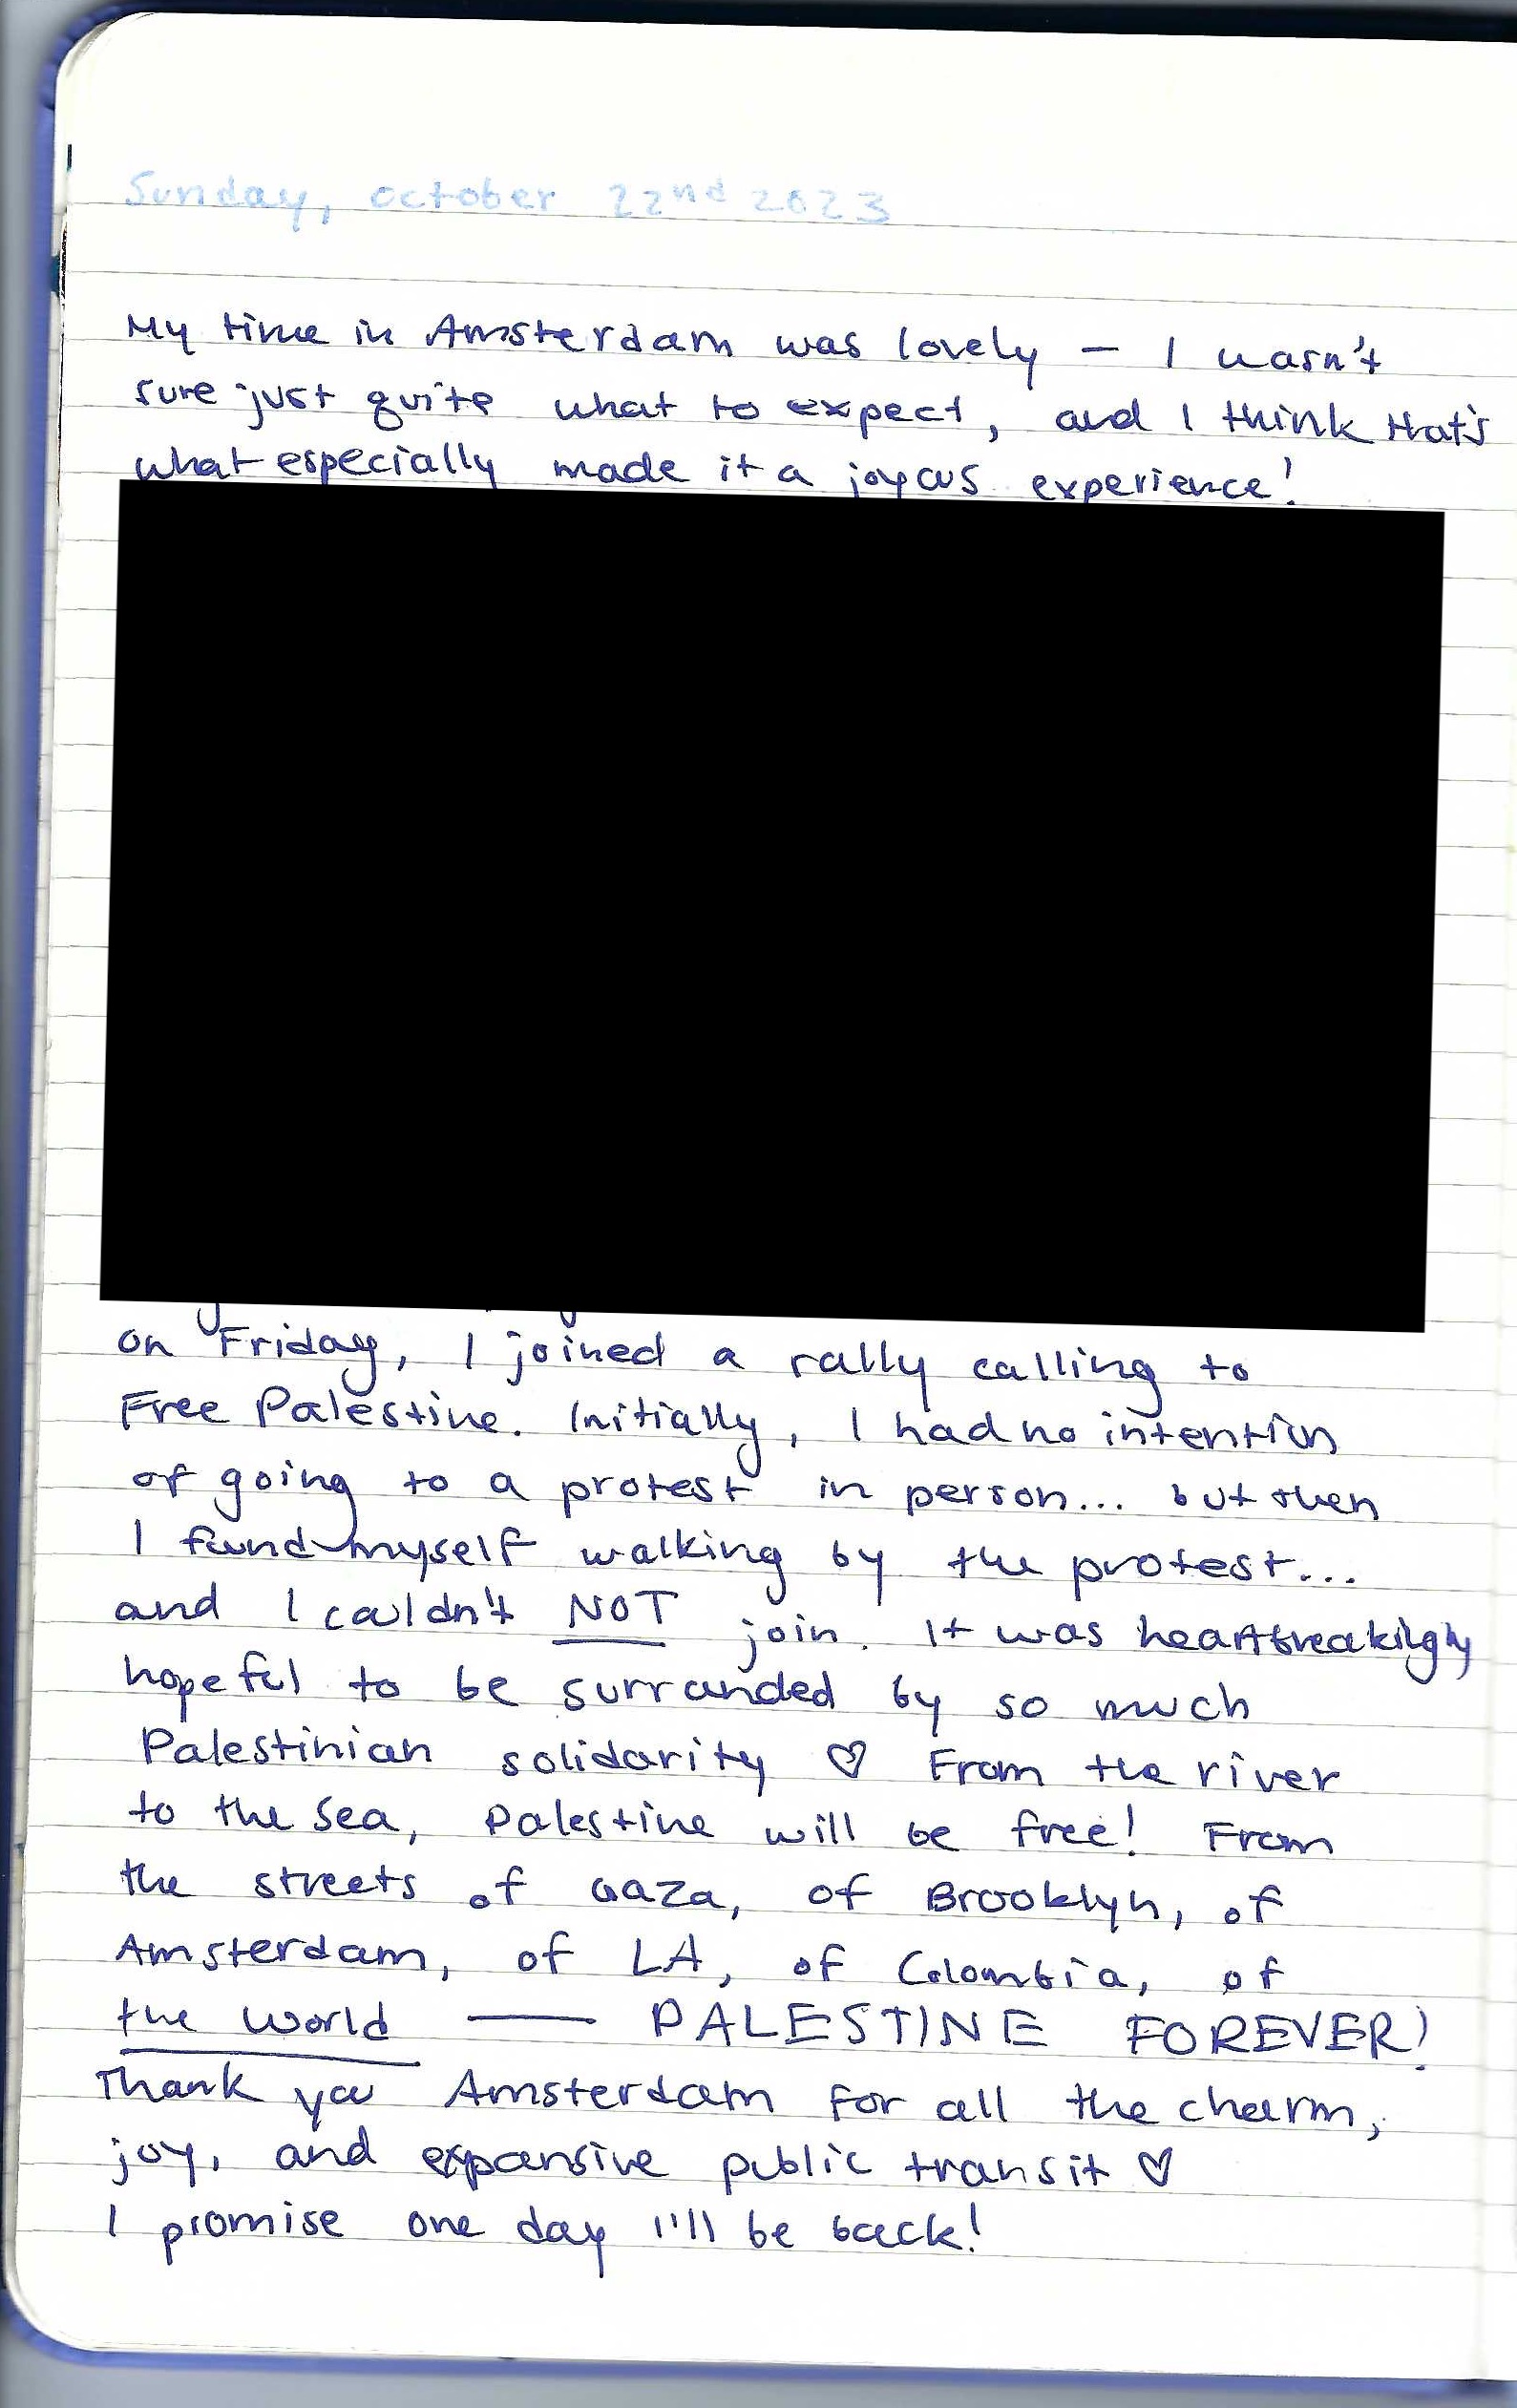 Sunday, October 22nd 2023
My time in Amsterdam was lovely — I wasn't
sure just quite what to expect, and I think that's
what especially made it a joyous experience!
on Friday, I joined a rally calling to
Free Palestine. Initially, I had no intention
of going to a protest in person... but then
I found myself walking by the protest...
and I couldn't NOT join. It was heartbreakingly
hopeful to be surrounded by so much
Palestinian solidarity ♡ From the river
to the sea, Palestine will be free! From
the streets of Gaza, of Brooklyn, of
Amsterdam, of LA, of Colombia, of
the world — PALESTINE FOREVER!
Thank you Amsterdam for all the charm,
joy, and expansive public transit ♡
I promise one day I'll be back!